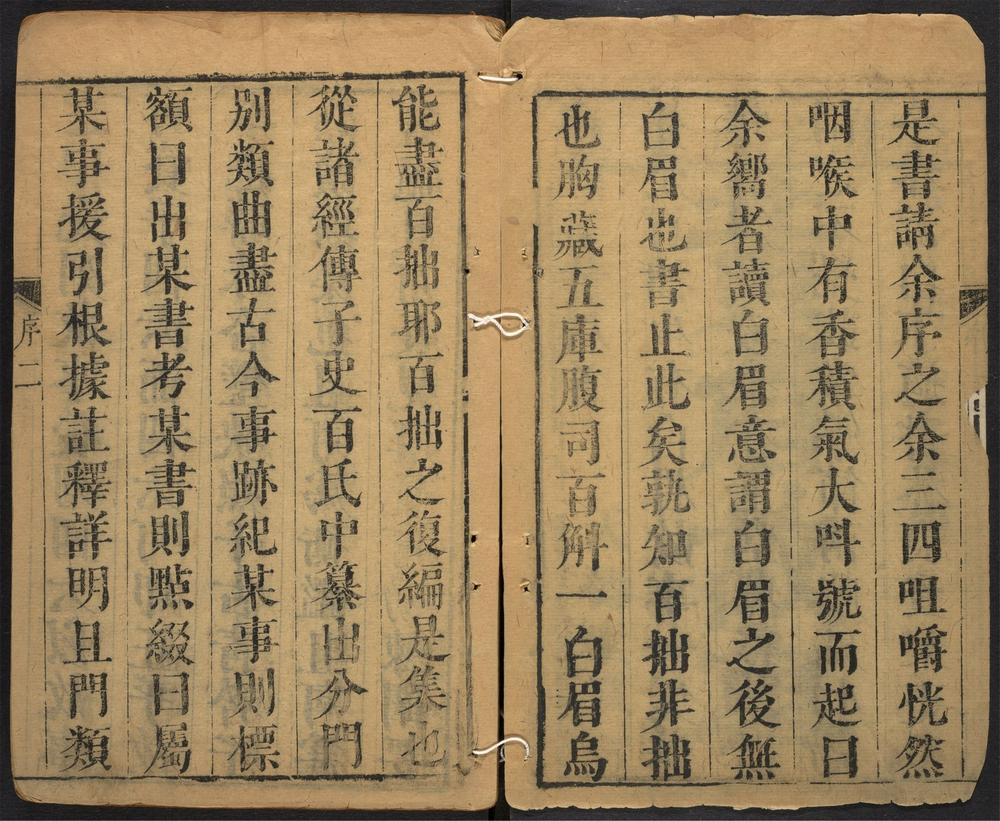 是書請余序之余三四咀嚼恍然
咽喉中有香積氣大呌號而起曰
余嚮者讀白眉意謂白眉之後無
白眉也書止此矣孰知百拙非拙
也胸藏五庫腹司百斛一白眉烏
能盡百拙耶百拙之復編是集也
從諸經傳子史百氏中纂出分門
別類曲盡古今事跡紀某事則標
額曰出某書考某書則點綴曰屬
某事援引根據註釋詳明且門類
序二